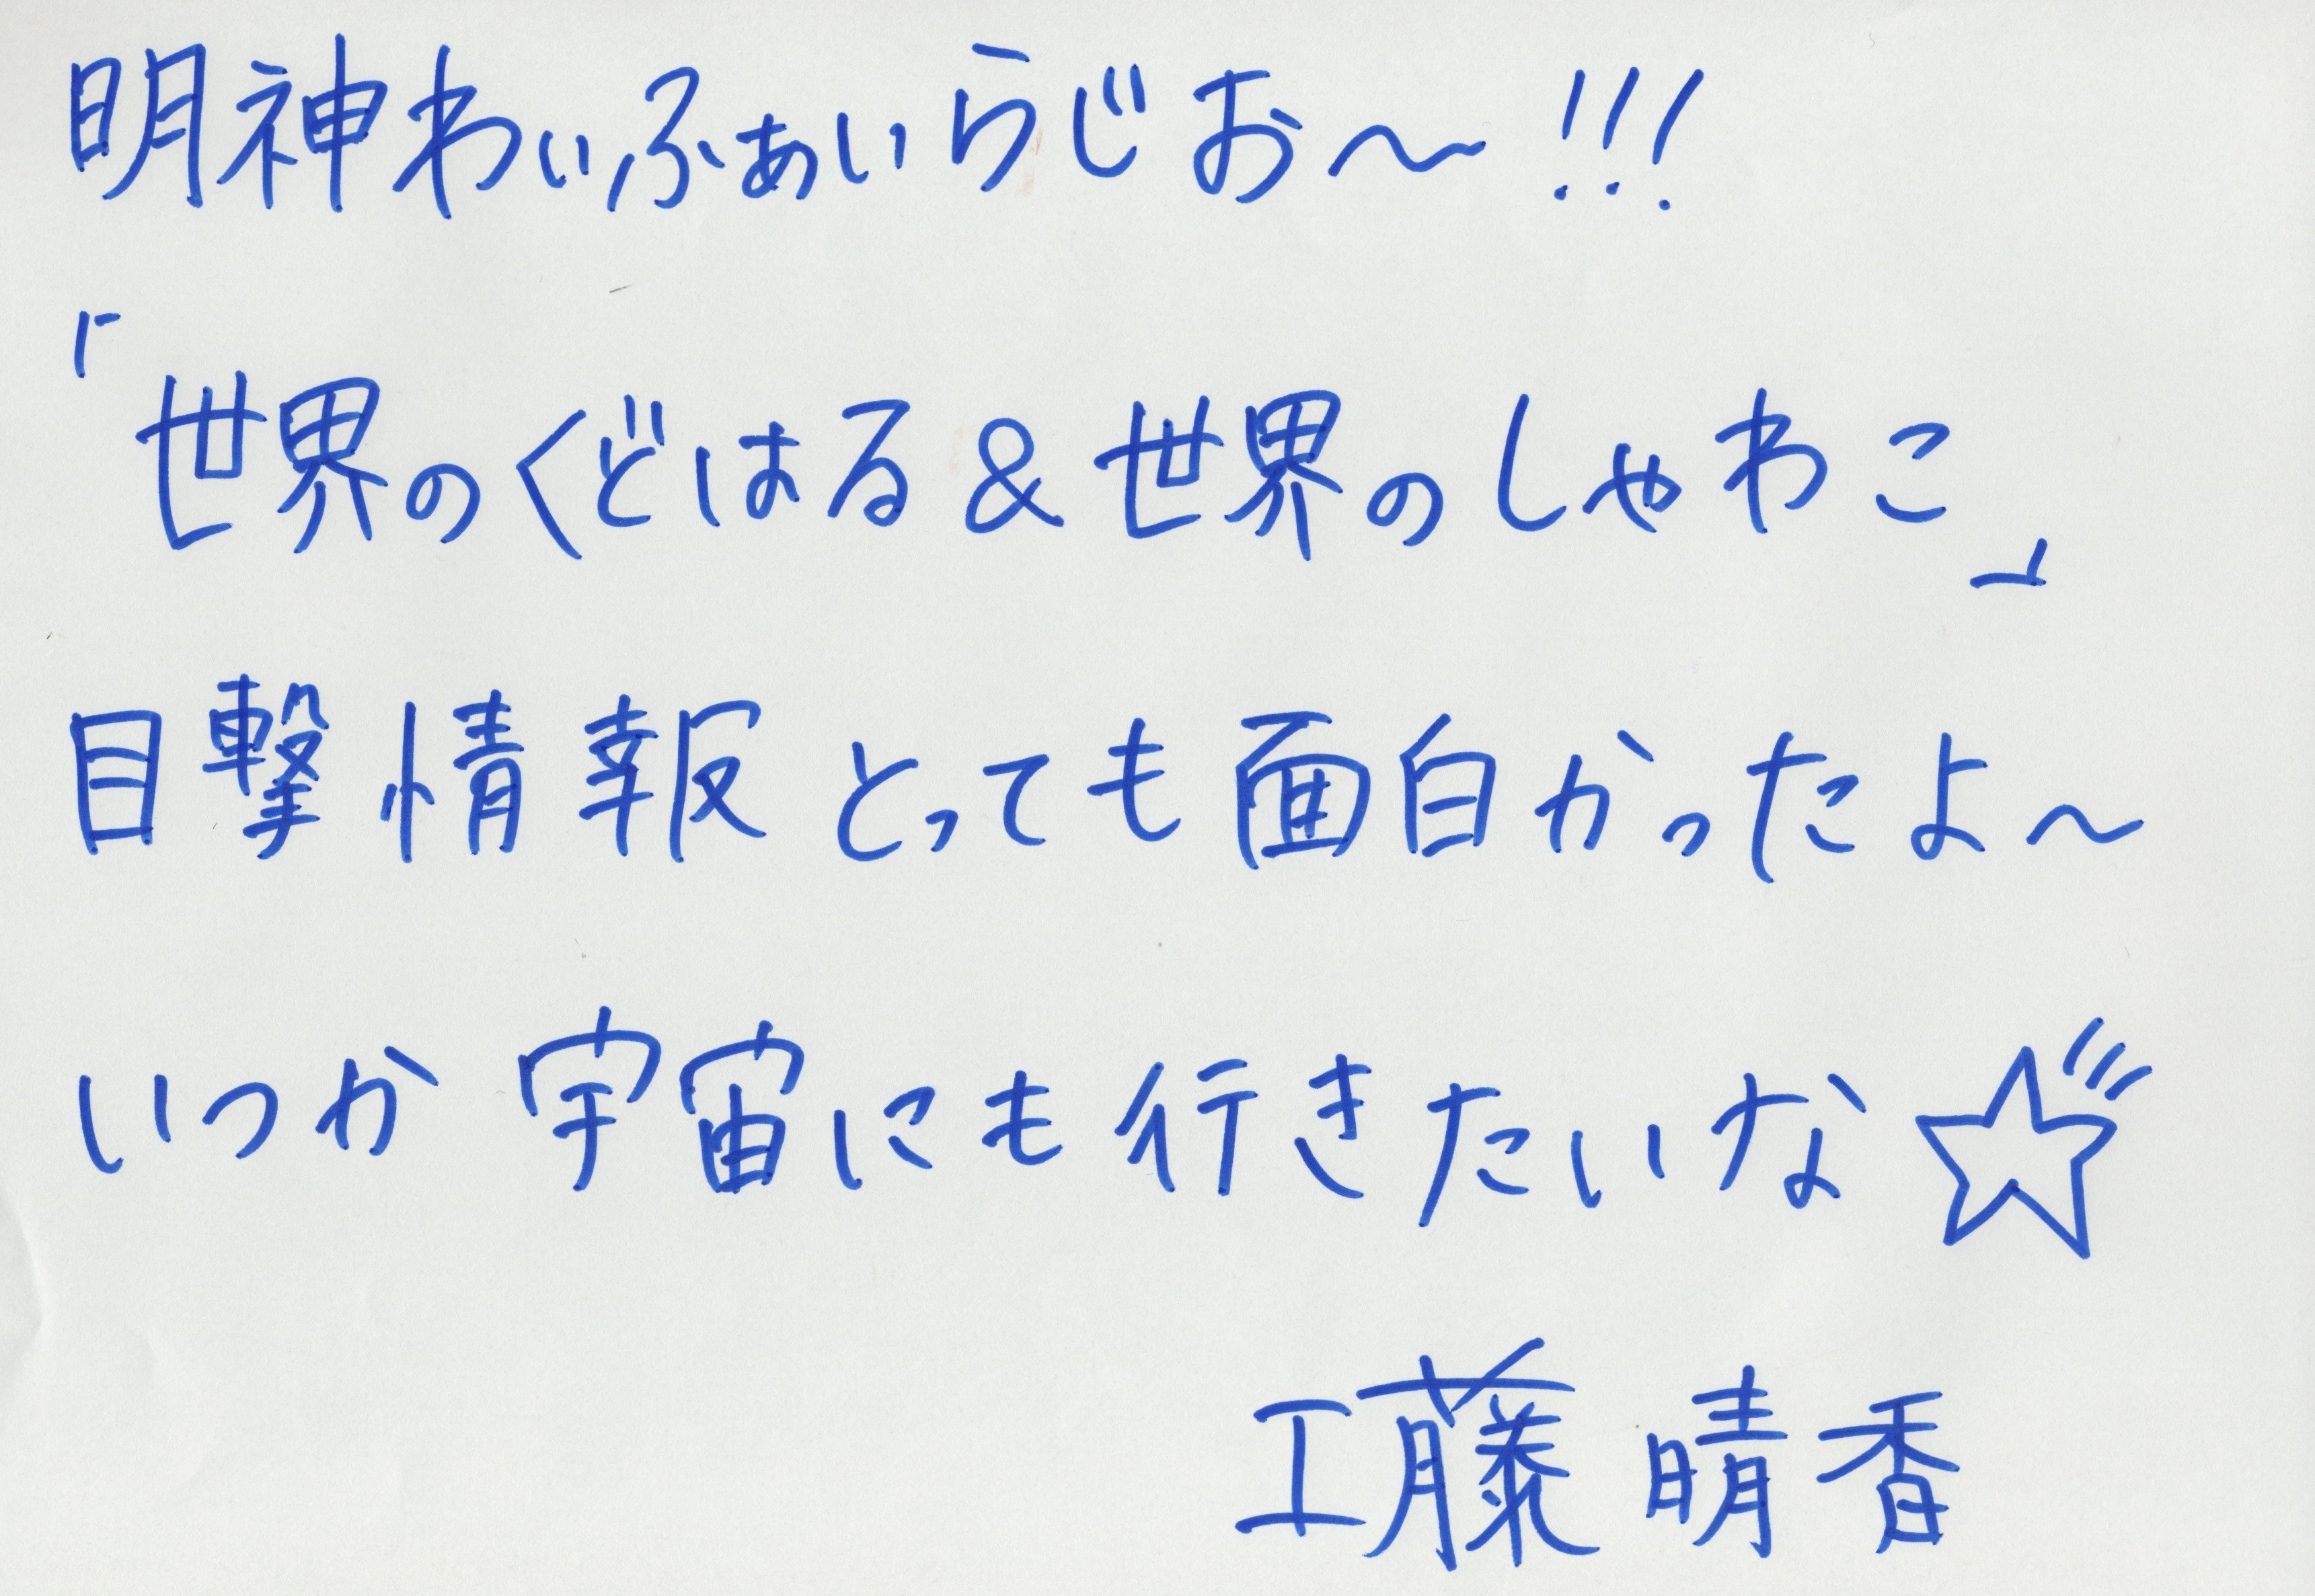 明神わいふぁいらじお〜!!!
「世界のくどはる&世界のしゃわこ」
目撃情報とっても面白かったよ〜
いつか宇宙にも行きたいな☆
工藤晴香